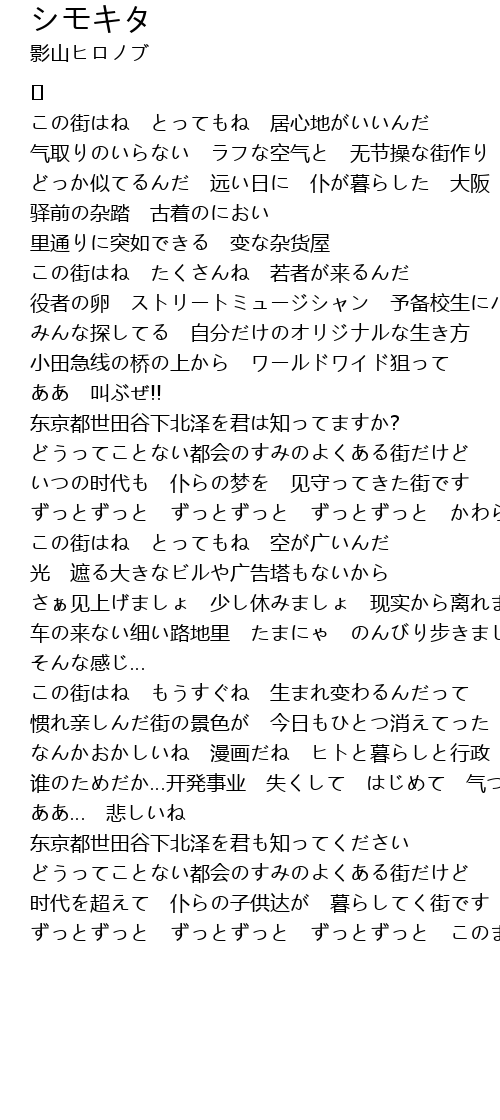 シモキタ
影山ヒロノブ
[]
この街はね　とってもね　居心地がいいんだ
气取りのいらない　ラフな空气と　无节操な街作り
どっか似てるんだ　远い日に　仆が暮らした　大阪
驿前の杂踏　古着のにおい
里通りに突如できる　变な杂货屋
この街はね　たくさんね　若者が来るんだ
役者の卵　ストリートミュージシャン　予备校生に
みんな探してる　自分だけのオリジナルな生き方
小田急线の桥の上から　ワールドワイド狙って
ああ　叫ぶぜ!!
东京都世田谷下北泽を君は知ってますか?
どうってことない都会のすみのよくある街だけど
いつの时代も　仆らの梦を　见守ってきた街です
ずっとずっと　ずっとずっと　ずっとずっと　かわら
この街はね　とってもね　空が广いんだ
光　遮る大きなビルや广告塔もないから
さぁ见上げましょ　少し休みましょ　现实から离れま
车の来ない细い路地里　たまにゃ　のんびり步きまし
そんな感じ...
この街はね　もうすぐね　生まれ变わるんだって
惯れ亲しんだ街の景色が　今日もひとつ消えてった
なんかおかしいね　漫画だね　ヒトと暮らしと行政
谁のためだか...开発事业　失くして　はじめて　气つ
ああ...　悲しいね
东京都世田谷下北泽を君も知ってください
どうってことない都会のすみのよくある街だけど
时代を超えて　仆らの子供达が　暮らしてく街です
ずっとずっと　ずっとずっと　ずっとずっと　このま